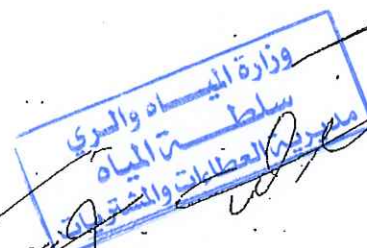 وزارة الميـــاه والـري
سلطـــة المياه
مديرية العطاءات والمشتريات